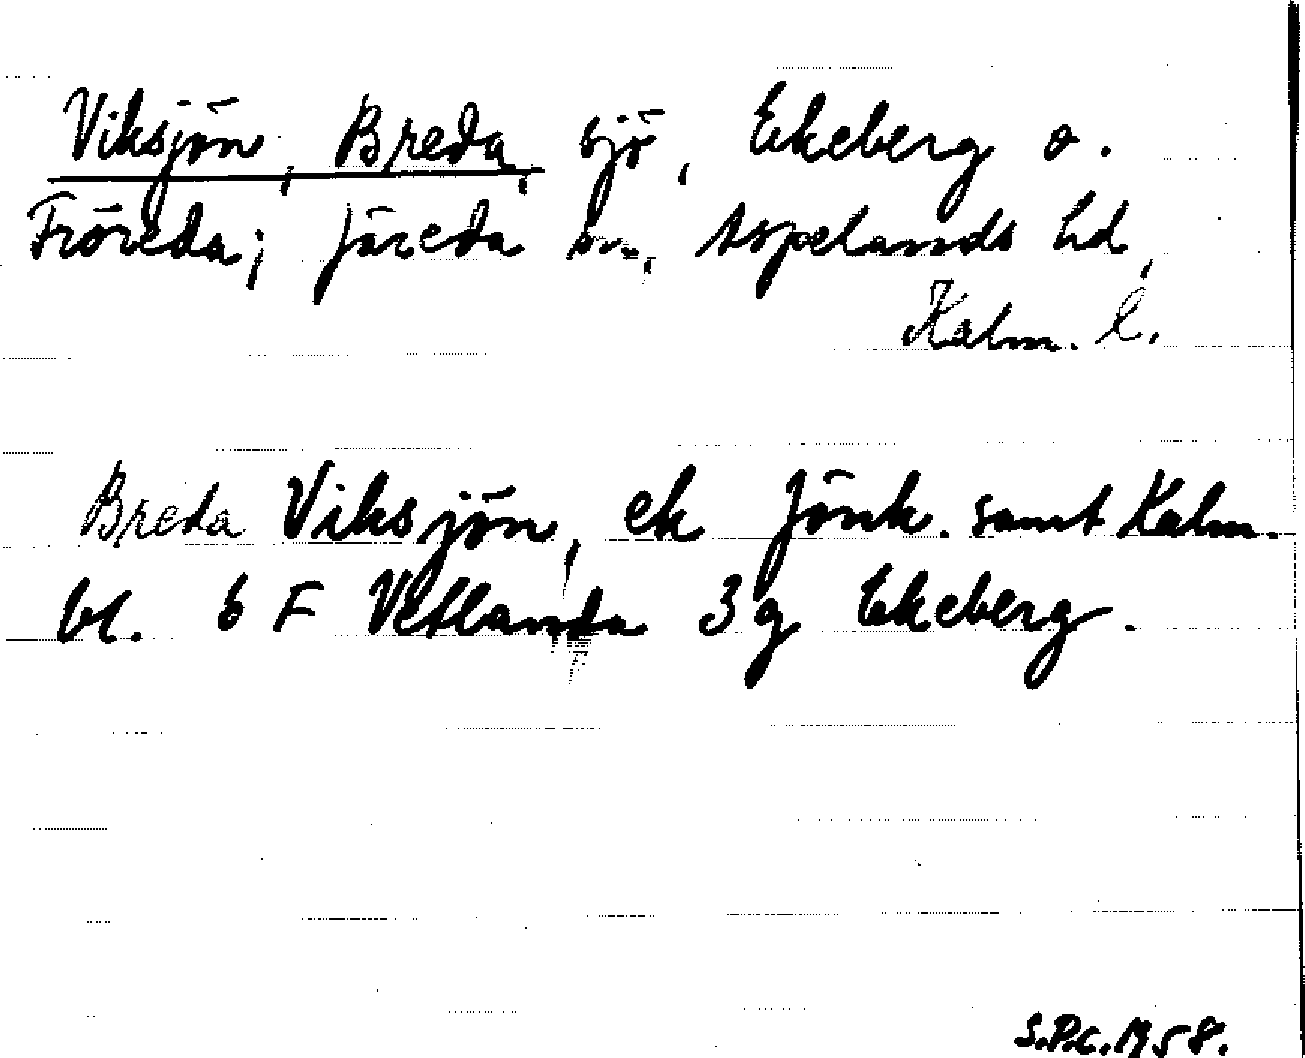 Viksjön, Breda, sjö, Ekeberg o.
Fröreda; Järeda sn, Aspelands hd,
Kalm. l.
Breda Viksjön, ek Jönk. samt Kalm.
bl. 6 F Vetlanda 3g Ekeberg.
S.P.C. 1958.